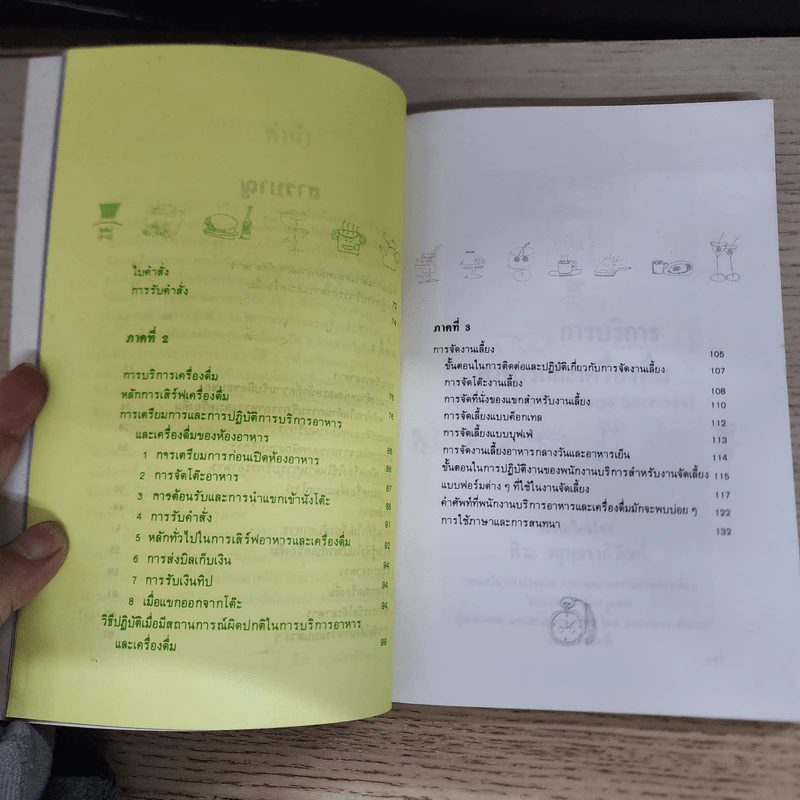 ใบคำสั่ง 72
การรับคำสั่ง 74
ภาคที่ 2
การบริการเครื่องดื่ม 76
หลักการเสิร์ฟเครื่องดื่ม 76
การเตรียมการและการปฏิบัติการบริการอาหาร
และเครื่องดื่มของห้องอาหาร 86
1 การเตรียมการก่อนเปิดห้องอาหาร 86
2 การจัดโต๊ะอาหาร 87
3 การต้อนรับและการนำแขกเข้านั่งโต๊ะ 91
4 การรับคำสั่ง 91
5 หลักทั่วไปในการเสิร์ฟอาหารและเครื่องดื่ม 92
6 การส่งบิลเก็บเงิน 94
7 การรับเงินทิป 94
8 เมื่อแขกออกจากโต๊ะ 94
วิธีปฏิบัติเมื่อมีสถานการณ์ผิดปกติในการบริการอาหาร
และเครื่องดื่ม 99
ภาคที่ 3
การจัดงานเลี้ยง 105
ขั้นตอนในการติดต่อและปฏิบัติเกี่ยวกับการจัดงานเลี้ยง 107
การจัดโต๊ะงานเลี้ยง 108
การจัดที่นั่งของแขกสำหรับงานเลี้ยง 110
การจัดเลี้ยงแบบค็อกเทล 112
การจัดเลี้ยงแบบบุฟเฟ่ 113
การจัดงานเลี้ยงอาหารกลางวันและอาหารเย็น 114
ขั้นตอนในการปฏิบัติงานของพนักงานบริการสำหรับงานจัดเลี้ยง 115
แบบฟอร์มต่าง ๆ ที่ใช้ในงานจัดเลี้ยง 117
คำศัพท์ที่พนักงานบริการอาหารและเครื่องดื่มมักจะพบบ่อย ๆ 122
การใช้ภาษาและการสนทนา 132